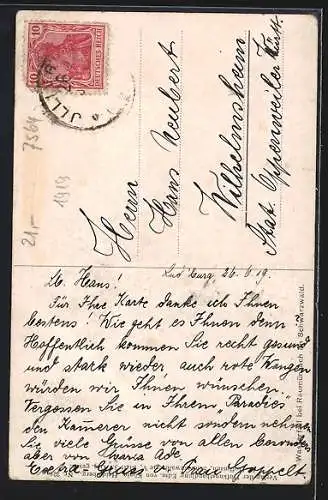 DEUTSCHES REICH
10 10
7564
21,-
1919
Herrn
Hans Neubert
Wilhelmsheim
Stat. Oppenweiler Württ.
Ludwburg, 26.6.19.
Lb. Hans!
Für Ihre Karte danke ich Ihnen
bestens! Wie geht es Ihnen denn?
Hoffentlich kommen Sie recht gesund
und stark wieder, auch rote Wangen
würden wir Ihnen wünschen.
Vergessen Sie in Ihrem "Paradies"
den Kamerer nicht sondern nehmen
Sie viele Grüsse von allen besonders
aber von Maria Ade.
Goppelt
bei Raumünzach Schwarzwald.